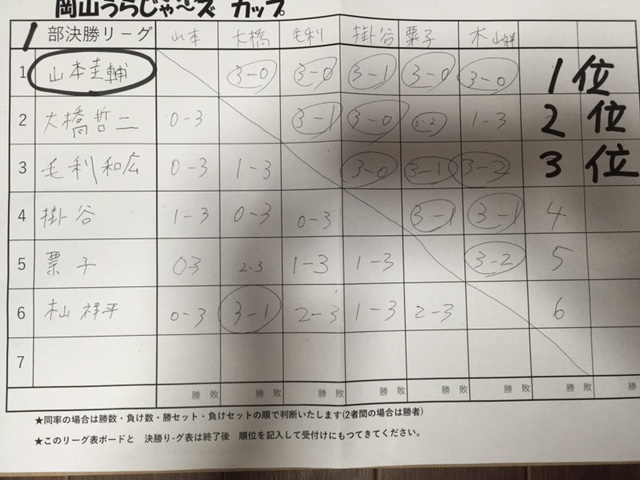 岡山うらじゃ～ズ カップ
1 部決勝リーグ 山本 大橋 毛利 掛谷 栗子 木山祥
1 山本圭輔 3-0 3-0 3-1 3-0 3-0 1位
2 大橋哲二 0-3 3-1 3-0 3-2 1-3 2位
3 毛利和広 0-3 1-3 3-0 3-1 3-2 3位
4 掛谷 1-3 0-3 0-3 3-1 3-1 4
5 栗子 0-3 2-3 1-3 1-3 3-2 5
6 木山祥平 0-3 3-1 2-3 1-3 2-3 6
7
勝 敗 勝 敗 勝 敗 勝 敗 勝 敗 勝 敗 勝 敗
★同率の場合は勝数・負け数・勝セット・負けセットの順で判断いたします(2者間の場合は勝者)
★このリーグ表ボードと 決勝り-グ表は終了後 順位を記入して受付けにもつてきてください。